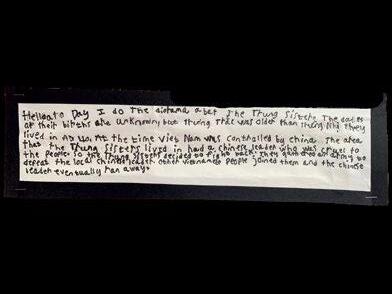 Hello to Day I do the diorama abat The Trung Sisters. The dates
of their births are unknown, but trung Trac was older than trung Nhị. They
lived in AD 40. At the time Viet Nam was controlled by china. the area
that the Trung Sisters lived in had a chinese leader who was cruel to
the people. so the trung Sisters decided to fight back. they gathered an army to
defeat the local chinese leader. other vietnamese people joined them and the chinese
leader eventually ran away.